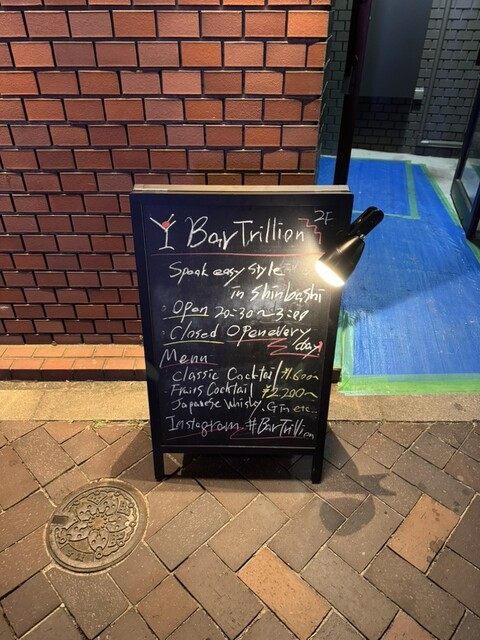 Bar Trillion 2F
Speak easy style
in Shinbashi
Open 20:30~3:00
Closed Open every
day!
Menu
Classic Cocktail ¥1.600~
Fruits Cocktail ¥2.200~
Japanese Whisky, Gin etc...
Instagram #BarTrillion